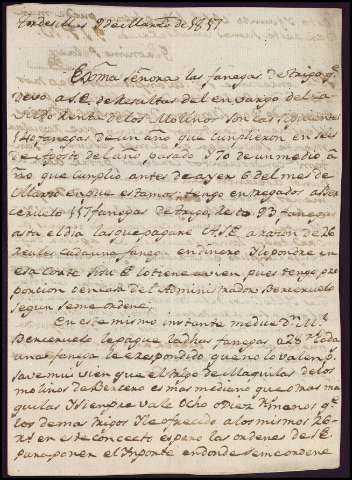 Tordesillas 9 de Marzo de 1817
Exма señora las fanegas de trigo q.e
devo a S.E. de Resultas del encargo de la
Renta de los Molinos son las siguientes
140 fanegas de un año que cumplieron en seis
de Agosto del año pasado y 70 de un medio a
ño que cumplio antes de ayer 6 del mes de
Marzo en que estamos, tengo entregados a Ber
ceruelo 117 fanegas de trigo, Resto 93 fanegas
asta el dia las que pagare A S.E a razon de 26
Reales cada una fanega en dinero y lo pondre en
esa Corte si S.E lo tiene a vien, pues tengo pro
porcion o en casa del Administrador Berceruelo
segun se me ordene,
En este mismo instante me dice D.n M.l
Berceruelo le pague las dhas fanegas a 28 R.s cada
una fanega le e respondido que no lo valen p.s
save mui vien que el trigo de Maquilas de los
molinos de Bercero es mas mediano que otras ma
quilas y siempre vale ocho o diez R.s menos q.e
los demas trigos y le ofrecido a los mismos 26
R.s en este concecto espero las ordenes de S.E.
para poner el Ynporte en donde se me ordene